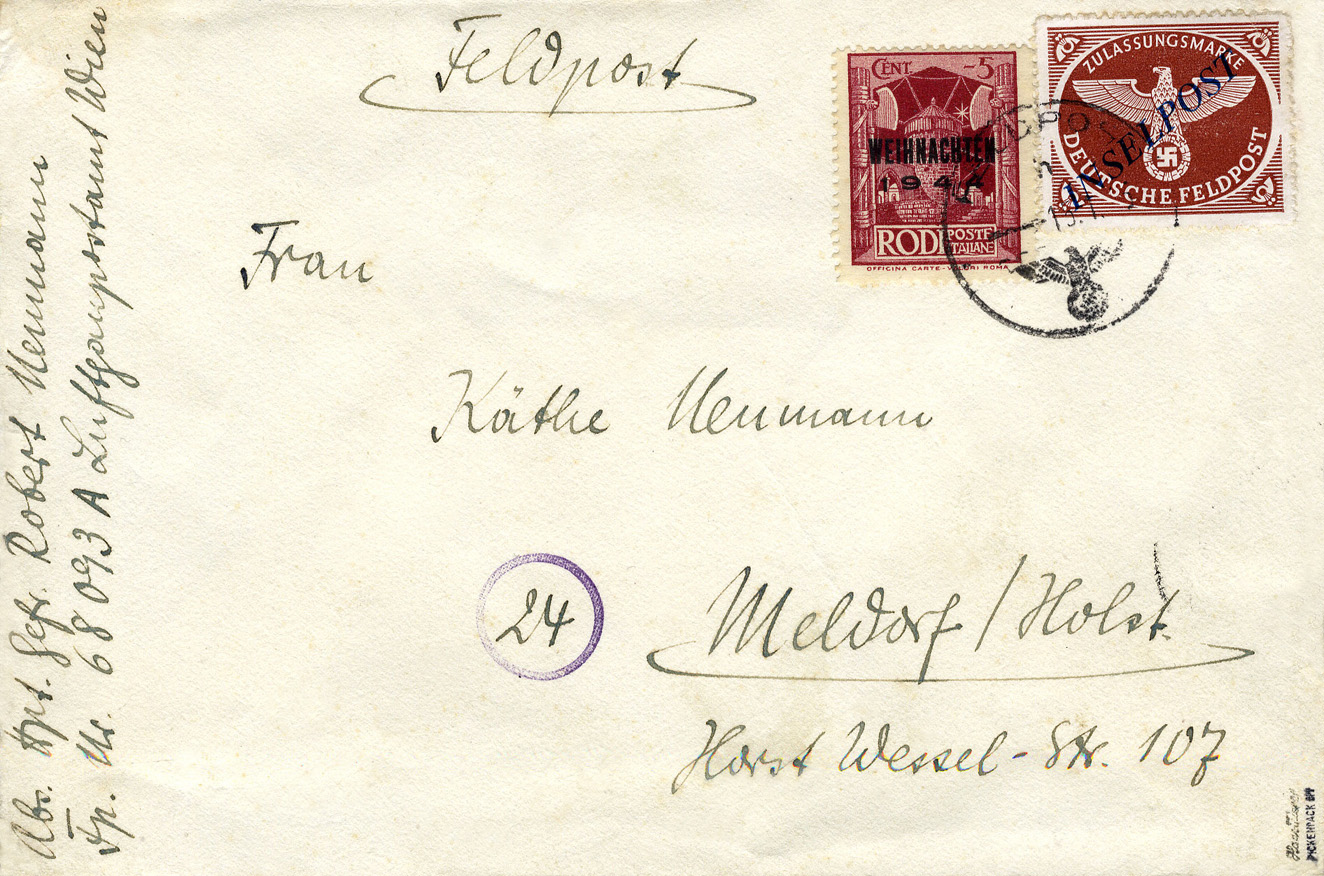 Feldpost
CENT. -5
WEIHNACHTEN
1944
RODI POSTE ITALIANE
OFFICINA CARTE-VALORI ROMA
ZULASSUNGSMARKE
INSELPOST
DEUTSCHE FELDPOST
Frau
Käthe Neumann
24
Meldorf/Holst.
Horst Wessel-Str. 107
Abs. Hpt. Gefr. Robert Neumann
Fp. Nr. 68093 A Luftgaupostamt Wien
PICKENPACK BPP